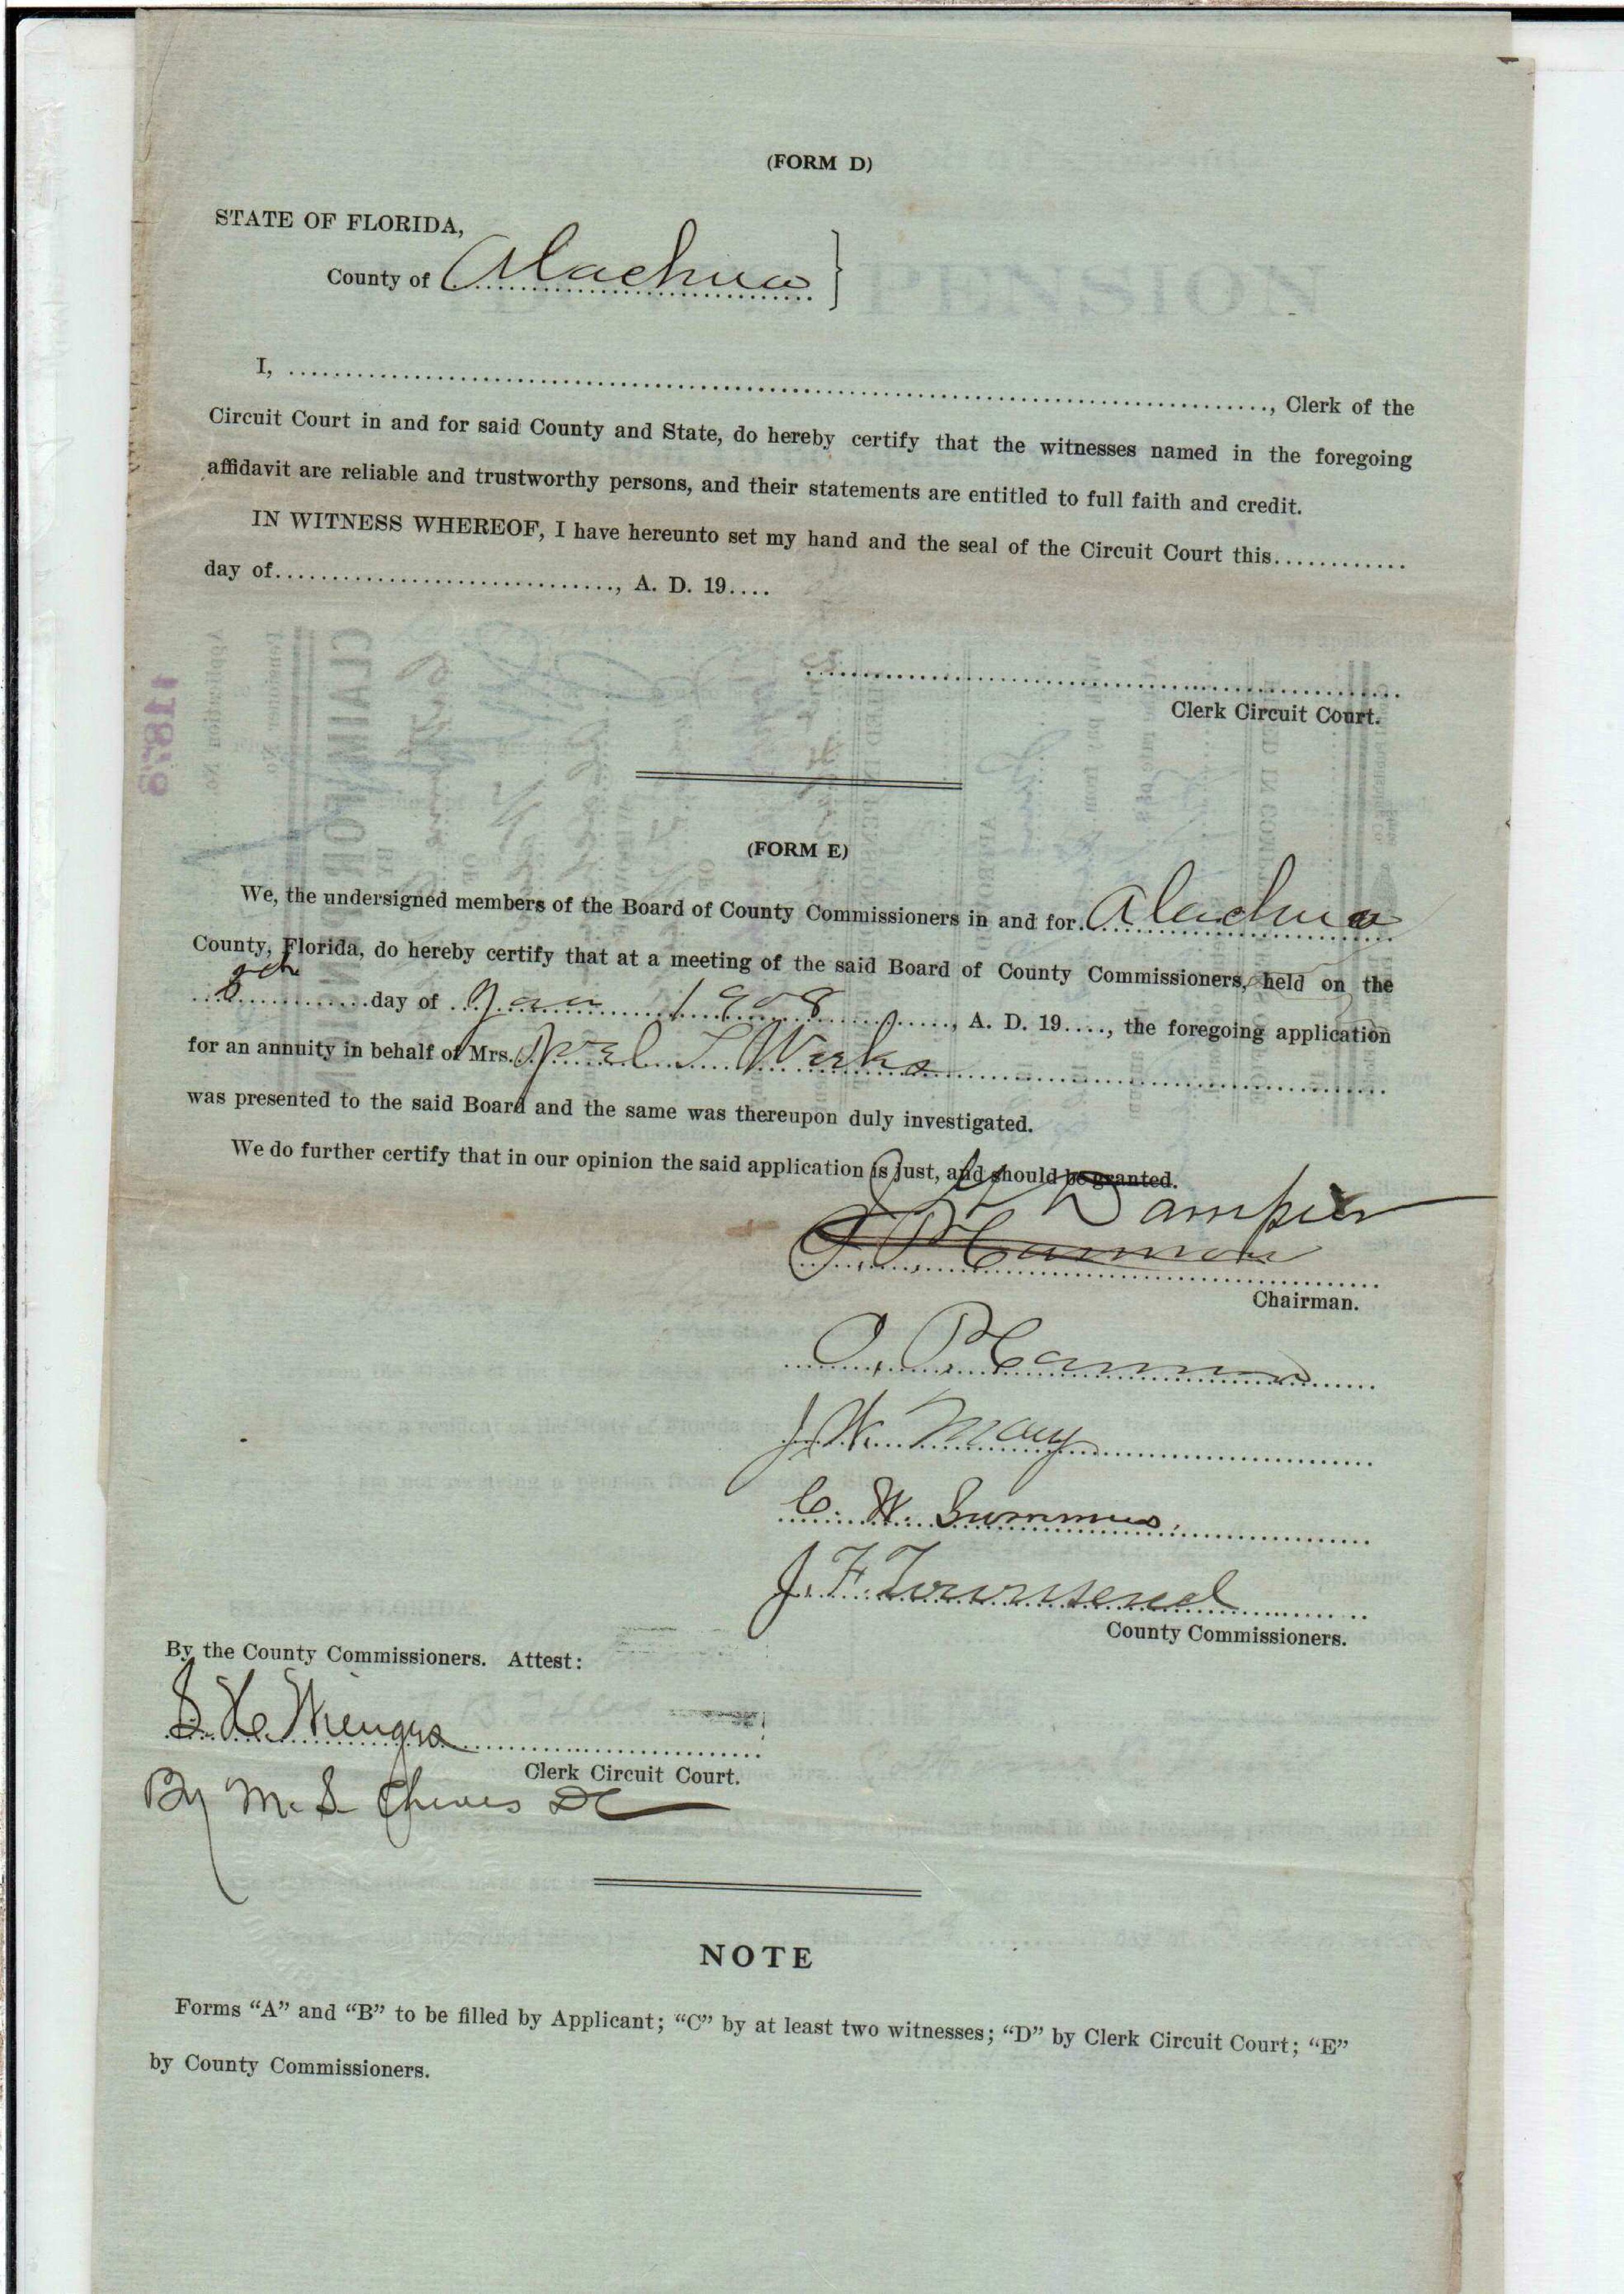 (FORM D)
STATE OF FLORIDA,
County of Alachua }
I, ......................................................, Clerk of the
Circuit Court in and for said County and State, do hereby certify that the witnesses named in the foregoing
affidavit are reliable and trustworthy persons, and their statements are entitled to full faith and credit.
IN WITNESS WHEREOF, I have hereunto set my hand and the seal of the Circuit Court this............
day of..............................., A. D. 19....
Clerk Circuit Court.
(FORM E)
We, the undersigned members of the Board of County Commissioners in and for Alachua
County, Florida, do hereby certify that at a meeting of the said Board of County Commissioners, held on the
day of Jan 1908, A. D. 19...., the foregoing application
for an annuity in behalf of Mrs. L Weeks
was presented to the said Board and the same was thereupon duly investigated.
We do further certify that in our opinion the said application is just, and should be granted.
Dampier
Chairman.
J. W. May
C. W. Summers.
J. F. Townsend
County Commissioners.
By the County Commissioners. Attest:
S. H. Wienges
Clerk Circuit Court.
By M. S. Cheves DC
NOTE
Forms “A” and “B” to be filled by Applicant; “C” by at least two witnesses; “D” by Clerk Circuit Court; “E”
by County Commissioners.